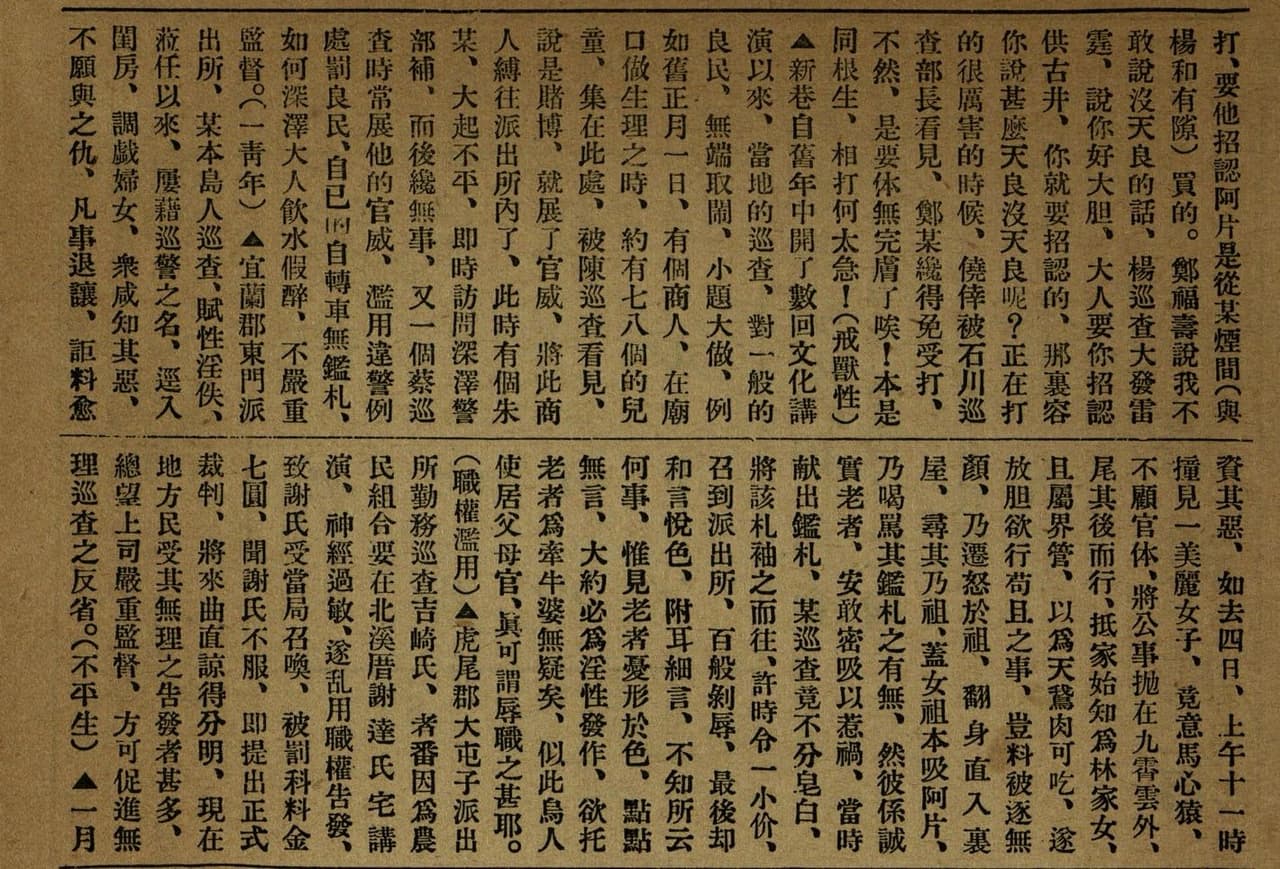 打、要他招認阿片是從某煙間（與
楊和有隙）買的。鄭福壽說我不
敢說沒天良的話、楊巡查大發雷
霆、說你好大胆、大人要你招認
供古井、你就要招認的、那裏容
你說甚麼天良沒天良呢？正在打
的很厲害的時候、僥倖被石川巡
查部長看見、鄭某纔得免受打、
不然、是要体無完膚了唉！本是
同根生、相打何太急！（戒獸性）
▲新巷自舊年中開了數回文化講
演以來、當地的巡查、對一般的
良民、無端取鬧、小題大做、例
如舊正月一日、有個商人、在廟
口做生理之時、約有七八個的兒
童、集在此處、被陳巡查看見、
說是賭博、就展了官威、將此商
人縛往派出所內了、此時有個朱
某、大起不平、即時訪問深澤警
部補、而後纔無事、又一個蔡巡
查時常展他的官威、濫用違警例
處罰良民、自己的自轉車無鑑札、
如何深澤大人飲水假醉、不嚴重
監督。（一靑年）▲宜蘭郡東門派
出所、某本島人巡查、賦性淫佚、
蒞任以來、屢藉巡警之名、逕入
閨房、調戲婦女、衆咸知其惡、
不願與之仇、凡事退讓、詎料愈
資其惡、如去四日、上午十一時
撞見一美麗女子、竟意馬心猿、
不顧官体、將公事拋在九霄雲外、
尾其後而行、抵家始知為林家女、
且屬界管、以為天鵞肉可吃、遂
放胆欲行苟且之事、豈料被逐無
顏、乃遷怒於祖、翻身直入裏
屋、尋其乃祖、蓋女祖本吸阿片、
乃喝罵其鑑札之有無、然彼係誠
實老者、安敢密吸以惹禍、當時
献出鑑札、某巡查竟不分皂白、
將該札袖之而往、許時令一小价、
召到派出所、百般剝辱、最後却
和言悅色、附耳細言、不知所云
何事、惟見老者憂形於色、點點
無言、大約必為淫性發作、欲托
老者為牽牛婆無疑矣、似此鳥人
使居父母官、眞可謂辱職之甚耶。
（職權濫用）▲虎尾郡大屯子派出
所勤務巡查吉崎氏、者番因為農
民組合要在北溪厝謝達氏宅講
演、神經過敏、遂乱用職權告發、
致謝氏受當局召喚、被罰科料金
七圓、聞謝氏不服、即提出正式
裁判、將來曲直諒得分明、現在
地方民受其無理之告發者甚多、
總望上司嚴重監督、方可促進無
理巡查之反省。（不平生）▲一月